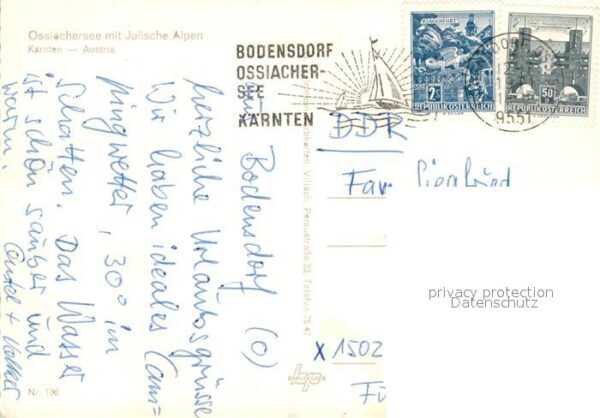 Ossiachersee mit Julische Alpen
Kärnten — Austria
BODENSDORF
OSSIACHER-
SEE
KÄRNTEN
KLAGENFURT
2S
REPUBLIK ÖSTERREICH
50g
REPUBLIK ÖSTERREICH
9551
Bodensdorf (O)
herzliche Urlaubsgrüsse
Wir haben ideales Cam=
pingwetter, 30° in
Schatten. Das Wasser
ist schön sauber und
warm.
Villach, Peraustraße 33, Telefon 75 47
DDR
Fam.
X 1502
privacy protection
Datenschutz
Nr. 196